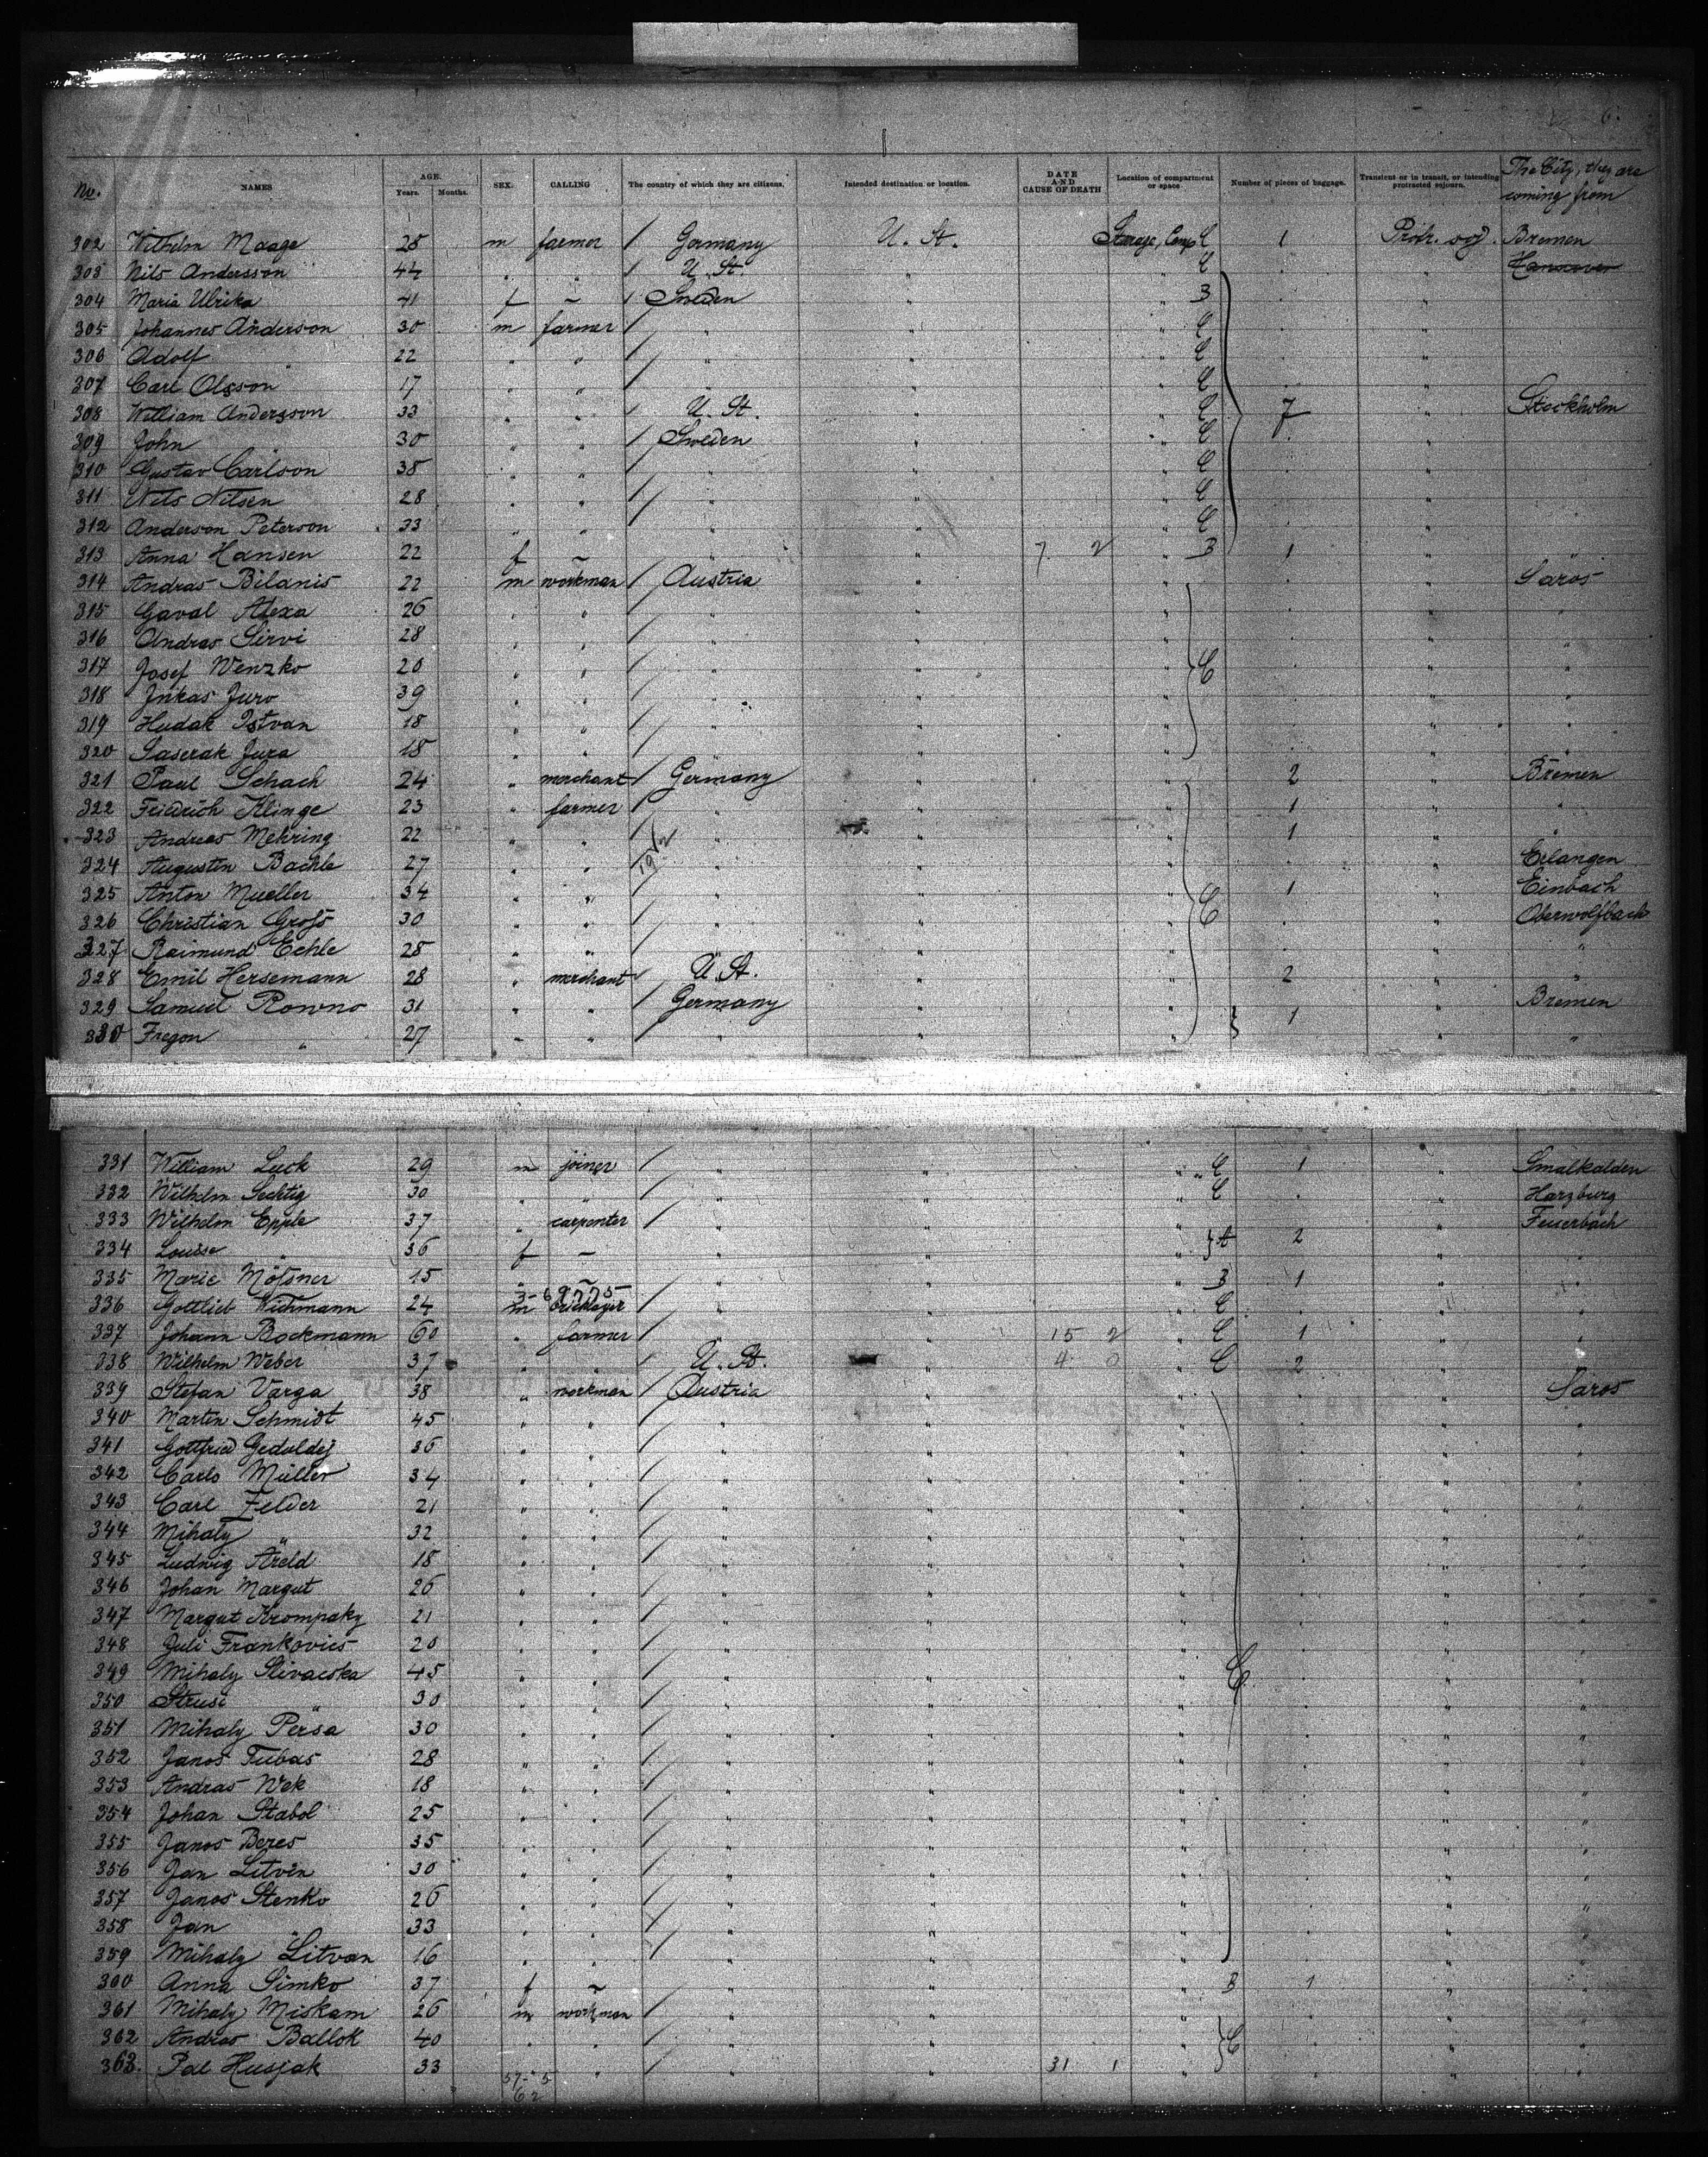 6.
No. NAMES AGE. Years. Months. SEX. CALLING The country of which they are citizens. Intended destination or location. DATE AND CAUSE OF DEATH Location of compartment or space Number of pieces of baggage. Transient or in transit, or intending protracted sojourn. The City, they are coming from
302 Wilhelm Maage 25 m farmer / Germany U. St. Steerage, Comp C 1 Protr. soj. Bremen
303 Nils Andersson 44 " " / U. St. " " C " " Hannover
304 Maria Ulrika 41 f – / Sweden " " B "
305 Johannes Anderson 30 m farmer / " " " C "
306 Adolf " 22 " " / " " " C "
307 Carl Olsson 17 " " / " " " C "
308 William Andersson 33 " " / U. St. " " C 7 " Stockholm
309 John " 30 " " / Sweden " " C "
310 Gustav Carlson 38 " " / " " " C "
311 Nils Nilsen 28 " " / " " " C "
312 Anderson Peterson 33 " " / " " " C "
313 Anna Hansen 22 f – " " 7 2 " B 1 " "
314 Andras Bilanis 22 m workman / Austria " " " Saros
315 Gaval Alexa 26 " " / " " " " "
316 Andras Sirvi 28 " " / " " " " "
317 Josef Wenzko 20 " " / " " " C " "
318 Jnkas Juro 39 " " / " " " " "
319 Hudak Istvan 18 " " / " " " " "
320 Saserak Jura 18 " " / " " " " "
321 Paul Schach 24 " merchant / Germany " " 2 " Bremen
322 Feiedrich Klinge 23 " farmer / " " " 1 " "
323 Andreas Mehring 22 " " / " " " 1 " "
324 Augustin Bachle 27 " " " " " " Erlangen
325 Anton Mueller 34 " " / " " " C 1 " Einbach
326 Christian Groß 30 " " / " " " " Oberwolfbach
327 Raimund Echle 25 " " / " " " " "
328 Emil Hersemann 28 " merchant / U. St. " " 2 " "
329 Samuel Rowno 31 " " / Germany " " 1 " Bremen
330 Fregon " 27 " " " " " " "
331 William Luck 29 m joiner / " " " C 1 " Smalkalden
332 Wilhelm Sechtig 30 " " / " " " C " Harzburg
333 Wilhelm Epple 37 " carpenter / " " " " Feuerbach
334 Louise " 36 f – " " " A 2 " "
335 Marie Mötsner 15 " – " " " B 1 " "
336 Gottlieb Wichmann 24 m bricklayer / " " " C " "
337 Johann Bockmann 60 " farmer / " " 15 2 " C 1 " "
338 Wilhelm Weber 37 " " / U. St. 4 0 " C 2 " "
339 Stefan Varga 38 " workman / Austria " " " Saros
340 Martin Schmidt 45 " " / " " " " "
341 Gottfried Geduldej 36 " " / " " " " "
342 Carls Müller 34 " " / " " " " "
343 Carl Felder 21 " " / " " " " "
344 Mihaly " 32 " " / " " " " "
345 Ludwig Areld 18 " " / " " " " "
346 Johan Margut 26 " " / " " " " "
347 Margut Krompaky 21 " " / " " " " "
348 Juli Frankovics 20 " " / " " " " "
349 Mihaly Slivacska 45 " " / " " " C " "
350 Strusi " 30 " " / " " " " "
351 Mihaly Persa 30 " " / " " " " "
352 Janos Tubas 28 " " / " " " " "
353 Andras Wek 18 " " / " " " " "
354 Johan Stabol 25 " " / " " " " "
355 Janos Beres 35 " " / " " " " "
356 Jan Litvin 30 " " / " " " " "
357 Janos Stenko 26 " " / " " " " "
358 Jan " 33 " " / " " " " "
359 Mihaly Litvan 16 " " / " " " " "
300 Anna Simko 37 f – " " B 1 " "
361 Mihaly Miskam 26 m workman / " " " " "
362 Andras Ballok 40 " " / " " " C " "
363. Pal Husjak 33 " / " " 31 1 " " "
57-5
62